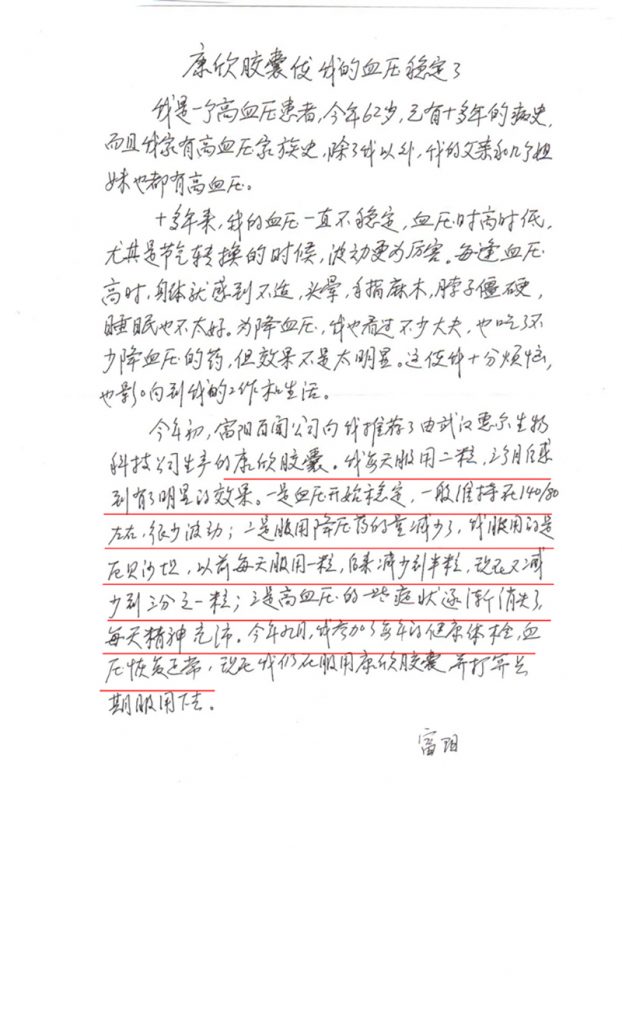 康欣胶囊使我的血压稳定了
我是一个高血压患者,今年62岁,已有十多年的病史,
而且我家有高血压家族史,除了我以外,我的父亲和几个姐
妹也都有高血压。
十多年来,我的血压一直不稳定,血压时高时低,
尤其是节气转换的时候,波动更为厉害。每逢血压
高时,身体就感到不适,头晕,手指麻木,脖子僵硬,
睡眠也不太好。为降血压,我也看过不少大夫,也吃了不
少降血压的药,但效果不是太明显。这使我十分烦恼,
也影响到我的工作和生活。
今年初,富阳百闻公司向我推荐了由武汉惠尔生物
科技公司生产的康欣胶囊。我每天服用二粒,三个月后感
到有了明显的效果。一是血压开始稳定,一般维持在140/80
左右,很少波动;二是服用降压药的量减少了,我服用的是
厄贝沙坦,以前每天服用一粒,后来减少到半粒,现在又减
少到三分之一粒;三是高血压的一些症状逐渐消失了,
每天精神充沛。今年九月,我参加了每年的健康体检,血
压恢复正常,现在我仍在服用康欣胶囊并打算长
期服用下去。
富阳